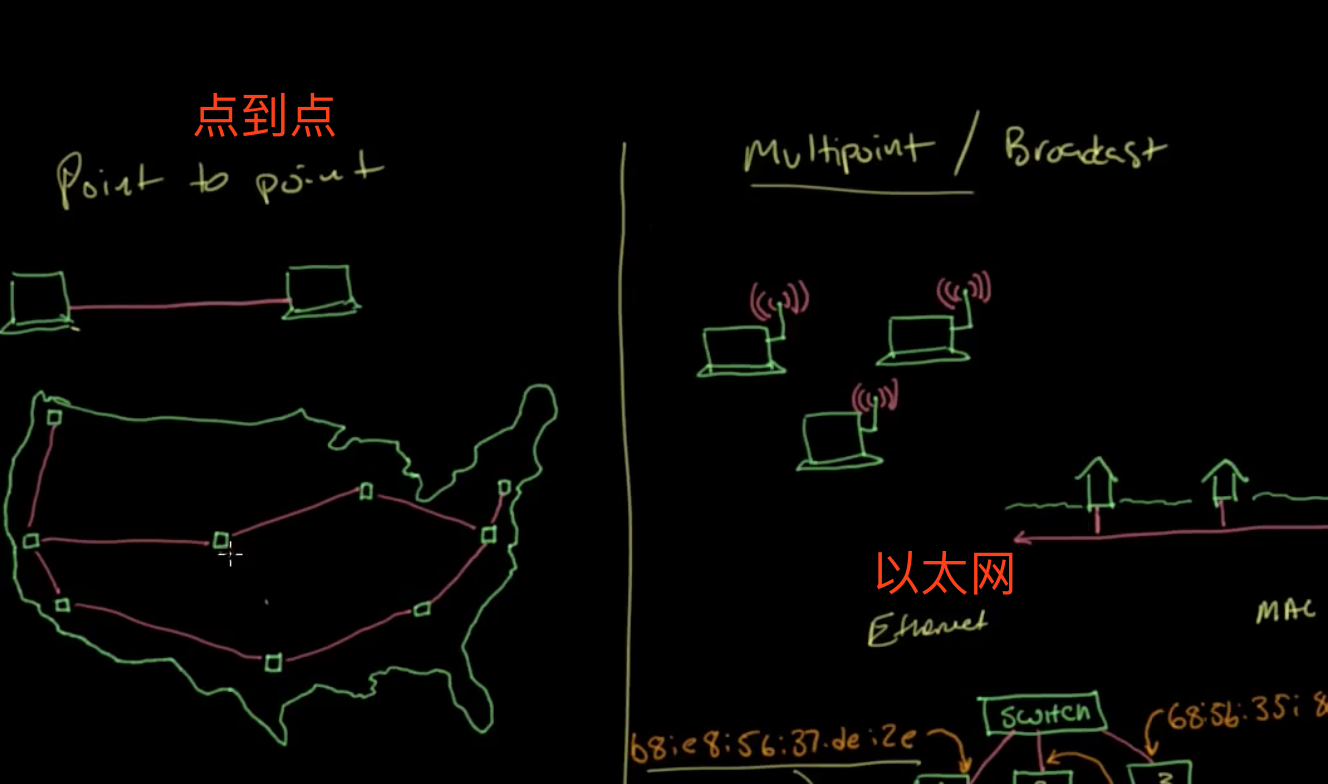 点到点
Point to point
Multipoint / Broadcast
以太网
Ethernet
MAC
Switch
68:56:35: 8
b8:e8:56:37:de:2e
3